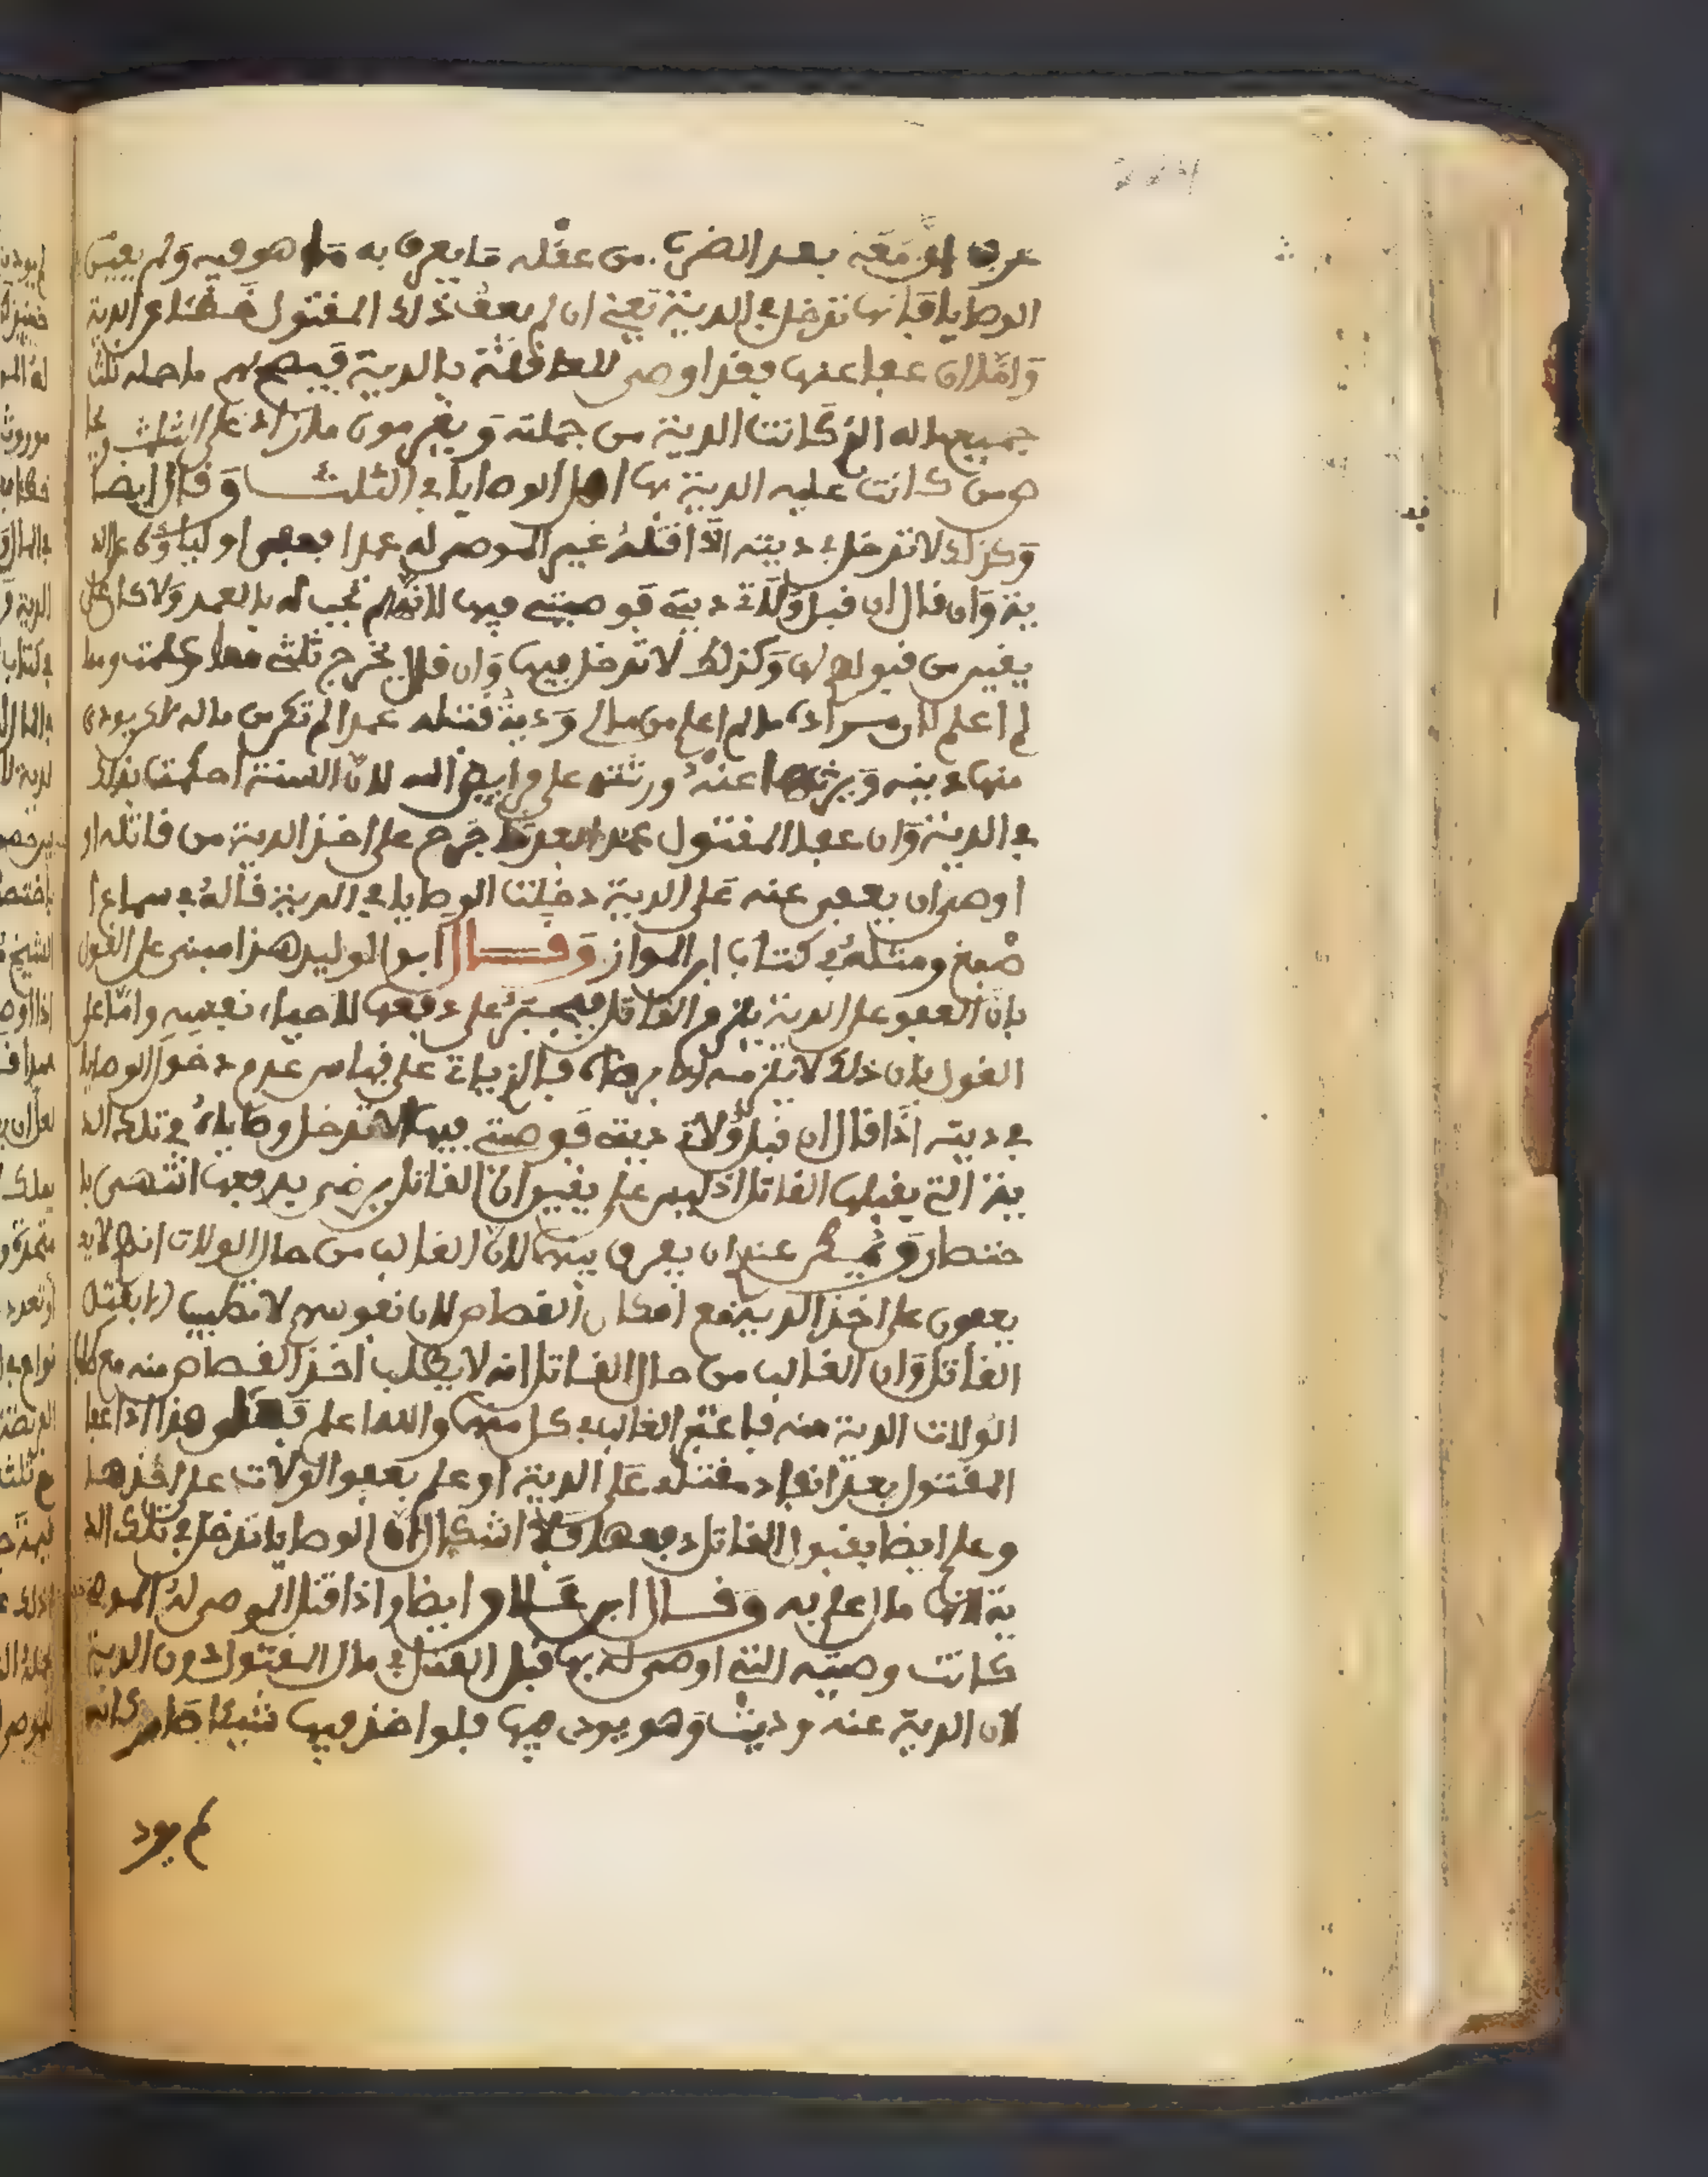 عرف او معه بعد الضرب من عقله ما يعرف به ما هو فيه ولم يغير
الوصايا فإنها تدخل في الدية يعني ان لم يعف ذلك المقتول عن الدية
وأما ان عفا عنها فقد اوصى للعاقلة بالدية فيصح لهم ما حمله ثلث
جميع ماله الذي كانت الدية من جملته ويغرمون ما زاد على الثلث
من كانت عليه الدية بها اهل الوصايا في الثلث وقال ايضا
وكذلك لا تدخل في ديته اذا قتله غير الموصى له عمدا فعفى اولياؤه على الد
ية وان قال ان قبل ولاتي ديتي فوصيتي فيها لانها لم تجب له بالعمد ولا كا على
يقين من قبولهم لها وكذلك لا تدخل فيها وان قال يخرج ثلثي مما علمت وما
لم اعلم لان مراده ما لم اعلم من مالي ودية قتله عمدا لم تكن من ماله يودى
منها دينه ويرثها عنه ورثته على فرايض الله لان السنة احكمت بذلك
في الدية وان عفا المقتول عمدا بعد ما جرح على اخذ الدية من قاتله او
اوصى ان يعفى عنه على الدية دخلت الوصايا في الدية قاله في سماع ا
صبغ ومثله في كتاب ابن المواز وقال ابو الوليد هذا مبنى على القول
بان العفو على الدية يلزم القاتل فيجبر على دفعها لاحياء نفسه واما على
القول بان ذلك لا يلزمه الا برضاه فبالزيادة على قياس عدم دخول الوصايا
في ديته اذا قال ان قبل ولاتي ديتي فوصيتي فيها لا تدخل وصاياه في تلك الد
ية التي يقبلها القاتل اذ ليس على يقين ان القاتل يرضى بدفعها انتهى با
ختصار عندي ان يعرف بينهما لان الغالب من حال الولات انهم لا
يعفون على اخذ الدية مع امكان القصاص لان نفوسهم لا تطيب الا بقتل
القاتل وان الغالب من حال القاتل انه لا يطلب اخذ القصاص منه مع طلب
الولات الدية منه فاعتبر الغالب في كل منهما والله اعلم هذا اذا عفا
المقتول بعد انفاد مقتله على الدية او علم بعفو الولات على اخذها
وعلم ايضا بقبول القاتل دفعها فلا اشكال ان الوصايا تدخل في تلك الد
ية لانها مما علم به وقال ابن ايضا واذا قتل الموصى له الموصي
كانت وصيته التي اوصى له بها قبل القتل في مال المقتول دون الدية
لان الدية عنه وديت وهو يودى فيها فلو اخذ فيها شيئا صار كانه
لم يود